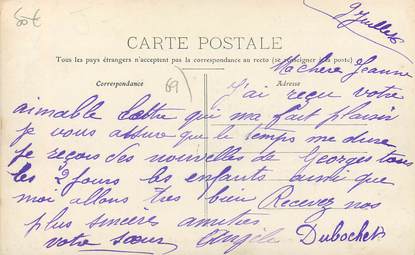 60€
9 Juillet
CARTE POSTALE
Tous les pays étrangers n'acceptent pas la correspondance au recto (se renseigner à la poste)
Correspondance
69
Adresse
Ma chère Jeanne
J'ai reçu votre
aimable lettre qui ma fait plaisir
je vous assure que le temps me dure
je reçois des nouvelles de Georges tous
les 2 jours les enfants ainsi que
moi allons très bien Recevez nos
plus sincères amitiés
votre sœur Angèle Dubochet